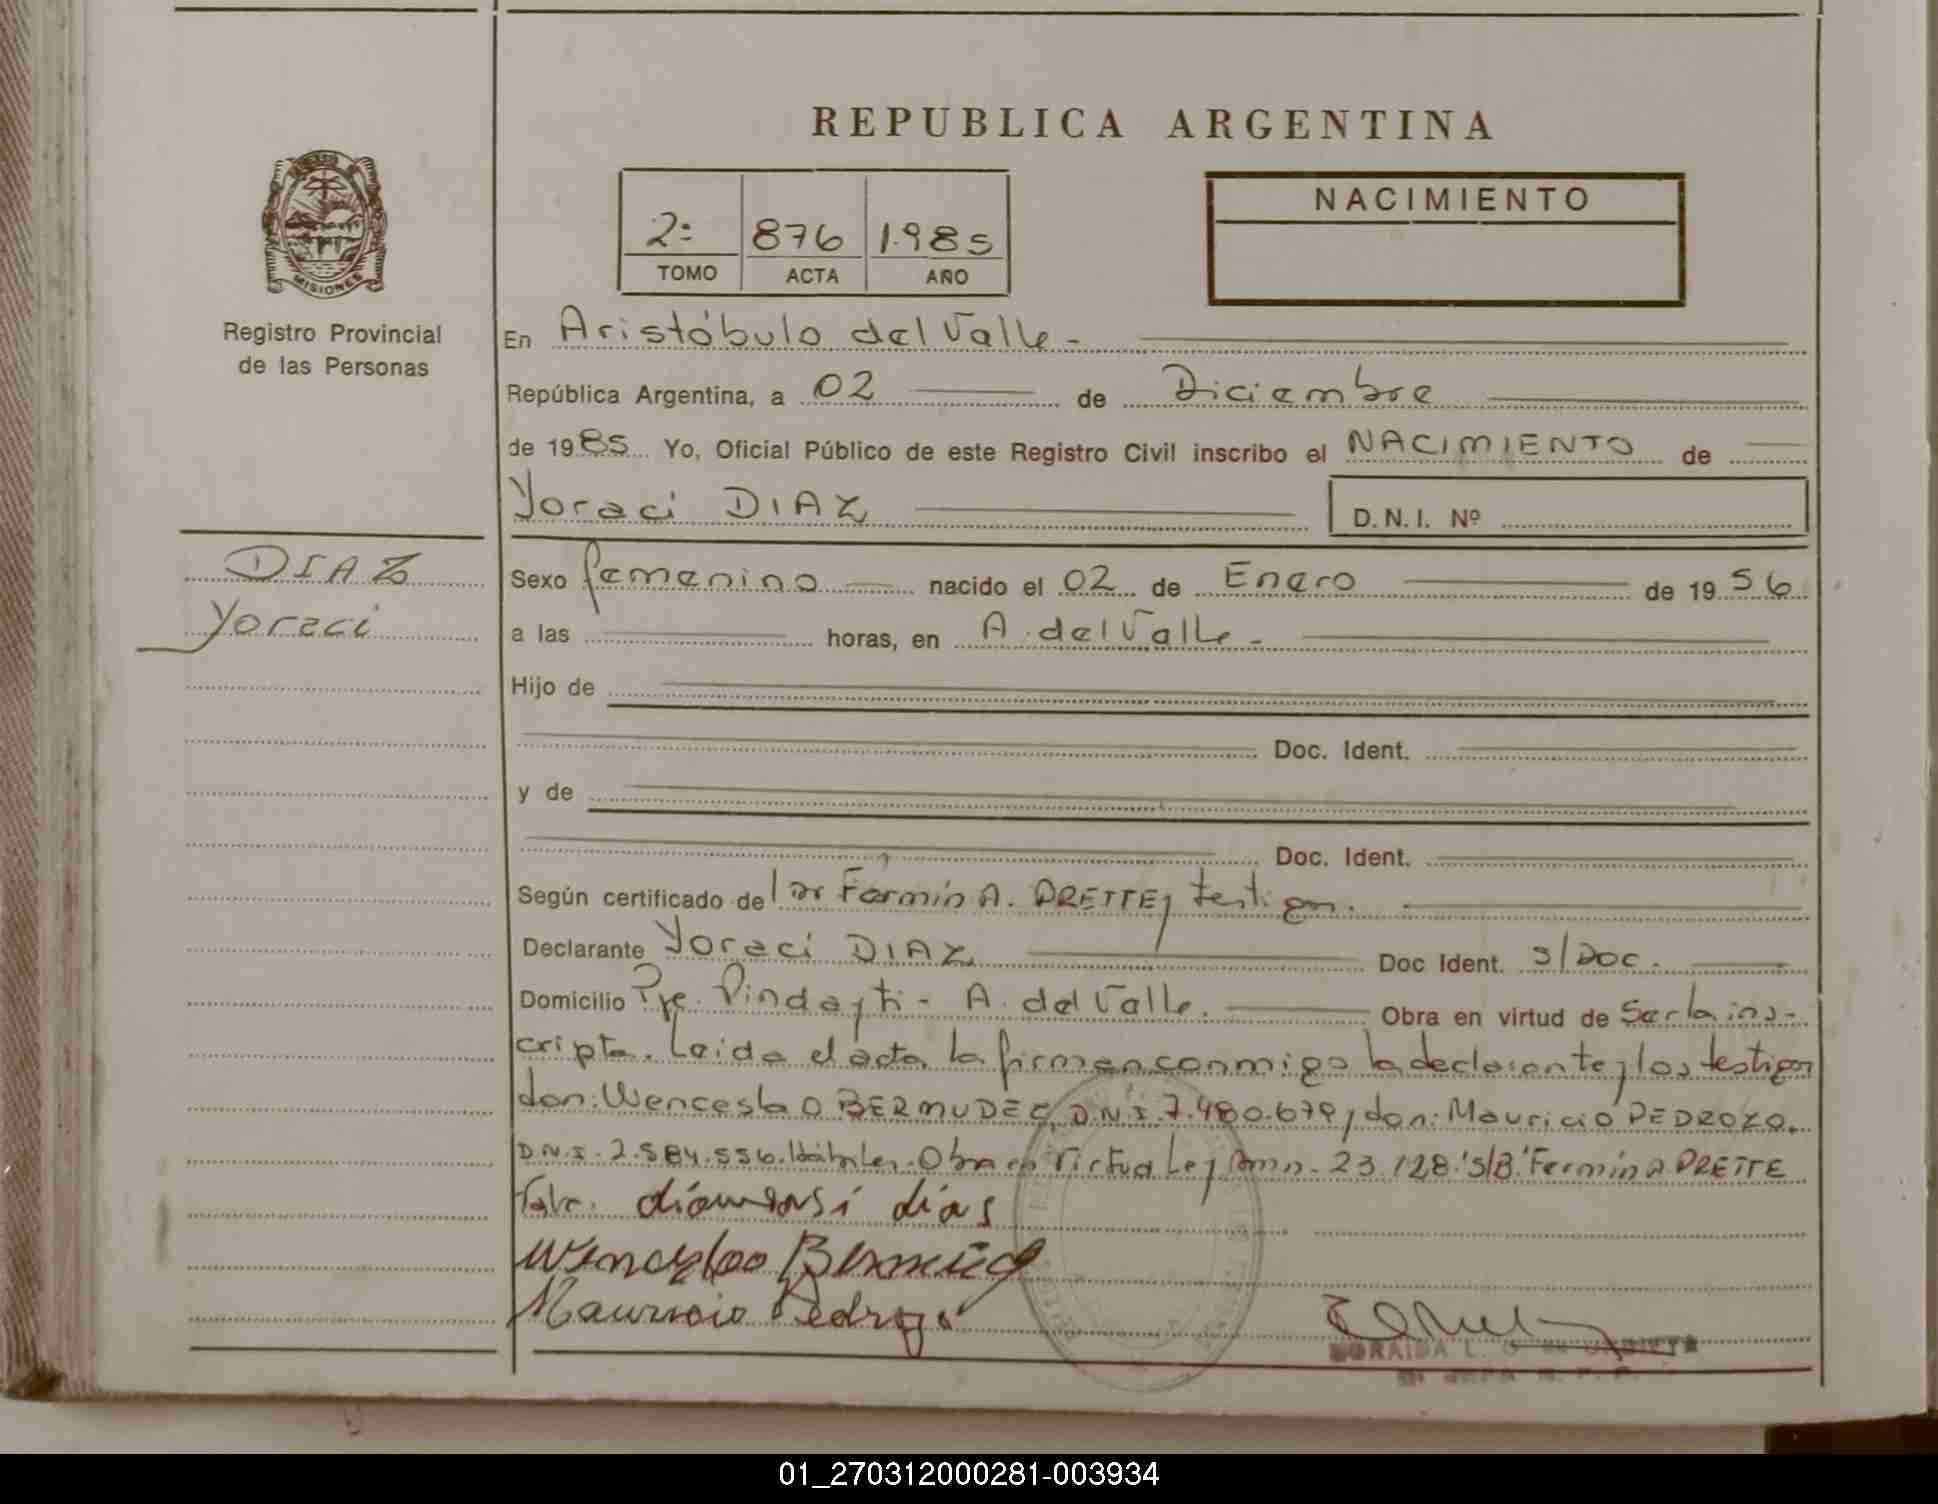 REPUBLICA ARGENTINA
MISIONES
Registro Provincial
de las Personas
2º 876 1.985
TOMO ACTA AÑO
NACIMIENTO
En Aristóbulo del Valle.-
República Argentina, a 02 de Diciembre
de 1985 Yo, Oficial Público de este Registro Civil inscribo el NACIMIENTO de
Yoraci DIAZ D.N.I. Nº
DIAZ
Yoraci
Sexo femenino nacido el 02 de Enero de 1956
a las horas, en A. del Valle.-
Hijo de
Doc. Ident.
y de
Doc. Ident.
Según certificado de Fermín A. PRETTE y testigos.
Declarante Yoraci DIAZ Doc Ident. S/Doc.
Domicilio Pje. Pindayti - A. del Valle. Obra en virtud de Ser la ins-
cripta. Leida el acta la firman conmigo la declarante y los testigos
don: Wenceslao BERMUDEZ, D.N.I. 7.480.679 y don: Mauricio PEDROZO.
D.N.I. 2.584.556. Hábiles. Obra en Virtud Ley 23.128. 'S/B.' Fermín A. PRETTE
Vale. dias
Wenceslao Bermudez
Mauricio Pedrozo
01_270312000281-003934